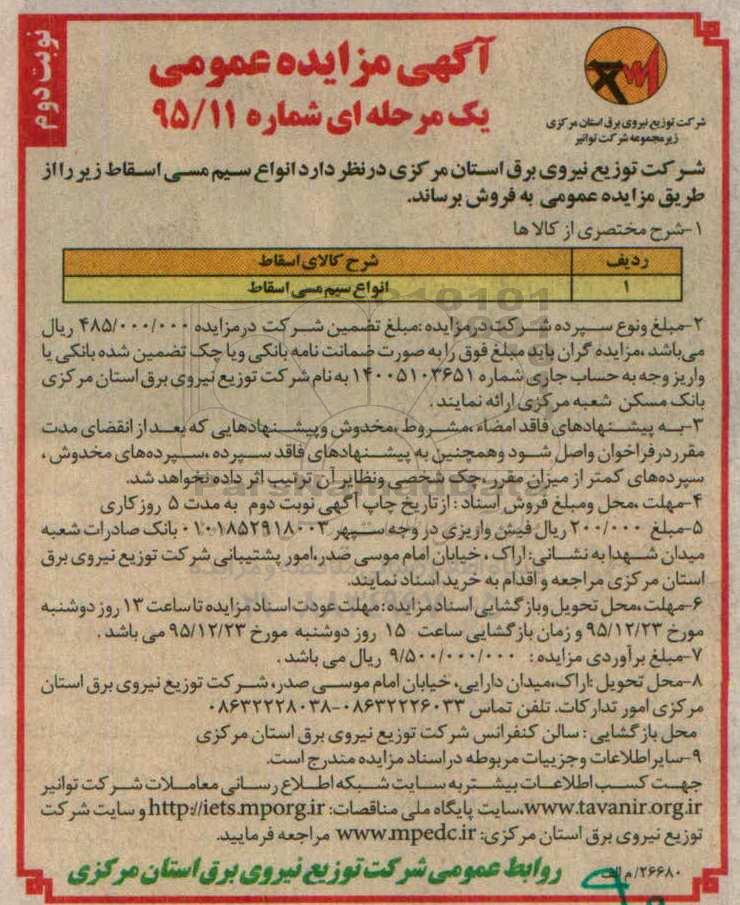 نوبت دوم
آگهی مزایده عمومی
یک مرحله ای شماره ۹۵/۱۱
شرکت توزیع نیروی برق استان مرکزی
زیرمجموعه شرکت توانیر
شرکت توزیع نیروی برق استان مرکزی درنظر دارد انواع سیم مسی اسقاط زیر را از
طریق مزایده عمومی به فروش برساند.
۱-شرح مختصری از کالا ها
ردیف شرح کالای اسقاط
۱ انواع سیم مسی اسقاط
۲-مبلغ ونوع سپرده شرکت درمزایده :مبلغ تضمین شرکت درمزایده ۴۸۵/۰۰۰/۰۰۰ ریال
می‌باشد ،مزایده گران باید مبلغ فوق را به صورت ضمانت نامه بانکی ویا چک تضمین شده بانکی یا
واریز وجه به حساب جاری شماره ۱۴۰۰۵۱۰۳۶۵۱ به نام شرکت توزیع نیروی برق استان مرکزی
بانک مسکن شعبه مرکزی ارائه نمایند .
۳-به پیشنهادهای فاقد امضاء ،مشروط ،مخدوش وپیشنهادهایی که بعد از انقضای مدت
مقرر درفراخوان واصل شود وهمچنین به پیشنهادهای فاقد سپرده ،سپرده‌های مخدوش ،
سپرده‌های کمتر از میزان مقرر ،چک شخصی ونظایر آن ترتیب اثر داده نخواهد شد.
۴-مهلت ،محل ومبلغ فروش اسناد : از تاریخ چاپ آگهی نوبت دوم به مدت ۵ روز کاری
۵-مبلغ ۲۰۰/۰۰۰ ریال فیش واریزی در وجه سپهر ۰۱۰۱۸۵۲۹۱۸۰۰۳ بانک صادرات شعبه
میدان شهدا به نشانی: اراک ، خیابان امام موسی صدر،امور پشتیبانی شرکت توزیع نیروی برق
استان مرکزی مراجعه و اقدام به خرید اسناد نمایند.
۶-مهلت ،محل تحویل وبازگشایی اسناد مزایده : مهلت عودت اسناد مزایده تا ساعت ۱۳ روز دوشنبه
مورخ ۹۵/۱۲/۲۳ و زمان بازگشایی ساعت ۱۵ روز دوشنبه مورخ ۹۵/۱۲/۲۳ می باشد .
۷-مبلغ برآوردی مزایده : ۹/۵۰۰/۰۰۰/۰۰۰ ریال می باشد .
۸-محل تحویل :اراک،میدان دارایی، خیابان امام موسی صدر، شرکت توزیع نیروی برق استان
مرکزی امور تدارکات. تلفن تماس ۰۸۶۳۲۲۲۶۰۳۳-۰۸۶۳۲۲۲۸۰۳۸
محل بازگشایی : سالن کنفرانس شرکت توزیع نیروی برق استان مرکزی
۹-سایر اطلاعات وجزییات مربوطه دراسناد مزایده مندرج است.
جهت کسب اطلاعات بیشتر به سایت شبکه اطلاع رسانی معاملات شرکت توانیر
www.tavanir.org.ir،سایت پایگاه ملی مناقصات: http://iets.mporg.ir و سایت شرکت
توزیع نیروی برق استان مرکزی: www.mpedc.ir مراجعه فرمایید.
۲۶۶۸۰/م الف
روابط عمومی شرکت توزیع نیروی برق استان مرکزی